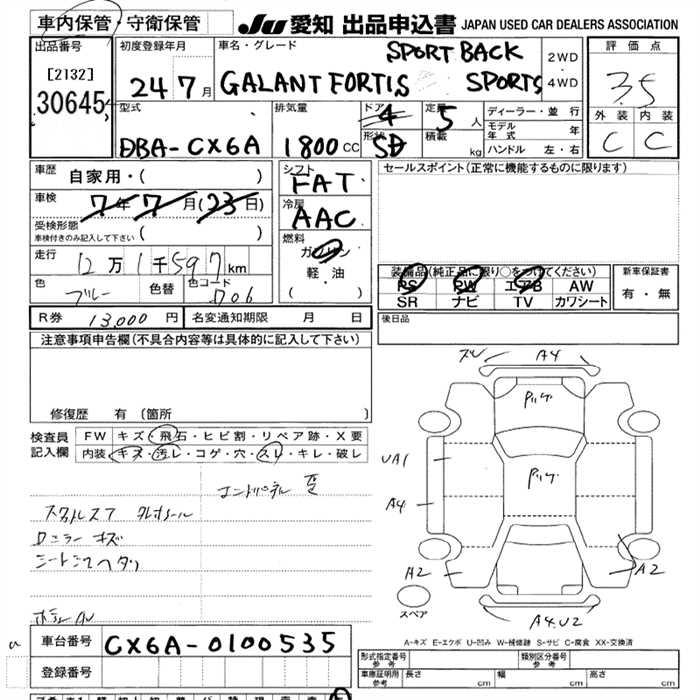 車内保管・守衛保管
JU 愛知 出品申込書 JAPAN USED CAR DEALERS ASSOCIATION
出品番号 初度登録年月 車名・グレード 評価点
[2132]
30645
24 7月
SPORT BACK
GALANT FORTIS SPORTS
2WD
4WD
3.5
外装 内装
C C
型式 排気量 ドア 定員
DBA-CX6A 1800cc 4 5人
形状 積載
SD kg
ディーラー・並行
モデル年式 年
ハンドル 左・右
車歴 自家用・( )
車検 7年7月(23日)
受検形態
車検付きのみ記入して下さい ( )
走行 12万1千597km
色 ブルー 色替 色コード D06
シフト
FAT
冷房
AAC
燃料
ガソリン
軽・油
( )
セールスポイント(正常に機能するものに限ります)
装備品(純正品に限り○をつけてください)
PS PW エアB AW
SR ナビ TV カワシート
新車保証書
有・無
R券 13,000円 名変通知期限 月 日
後日品
注意事項申告欄(不具合内容等は具体的に記入して下さい)
修復歴 有(箇所 )
検査員記入欄
FW キズ・飛石・ヒビ割・リペア跡・X要
内装 キズ・汚レ・コゲ・穴・スレ・キレ・破レ
A4
UA1
A4
A2
A2
A4.U2
スペア
A-キズ E-エクボ U-凹み W-補修跡 S-サビ C-腐食 XX-交換済
車台番号 CX6A-0100535
登録番号
形式指定番号 参考 類別区分番号 参考
車庫証明用 参考 長さ cm 幅 cm 高さ cm